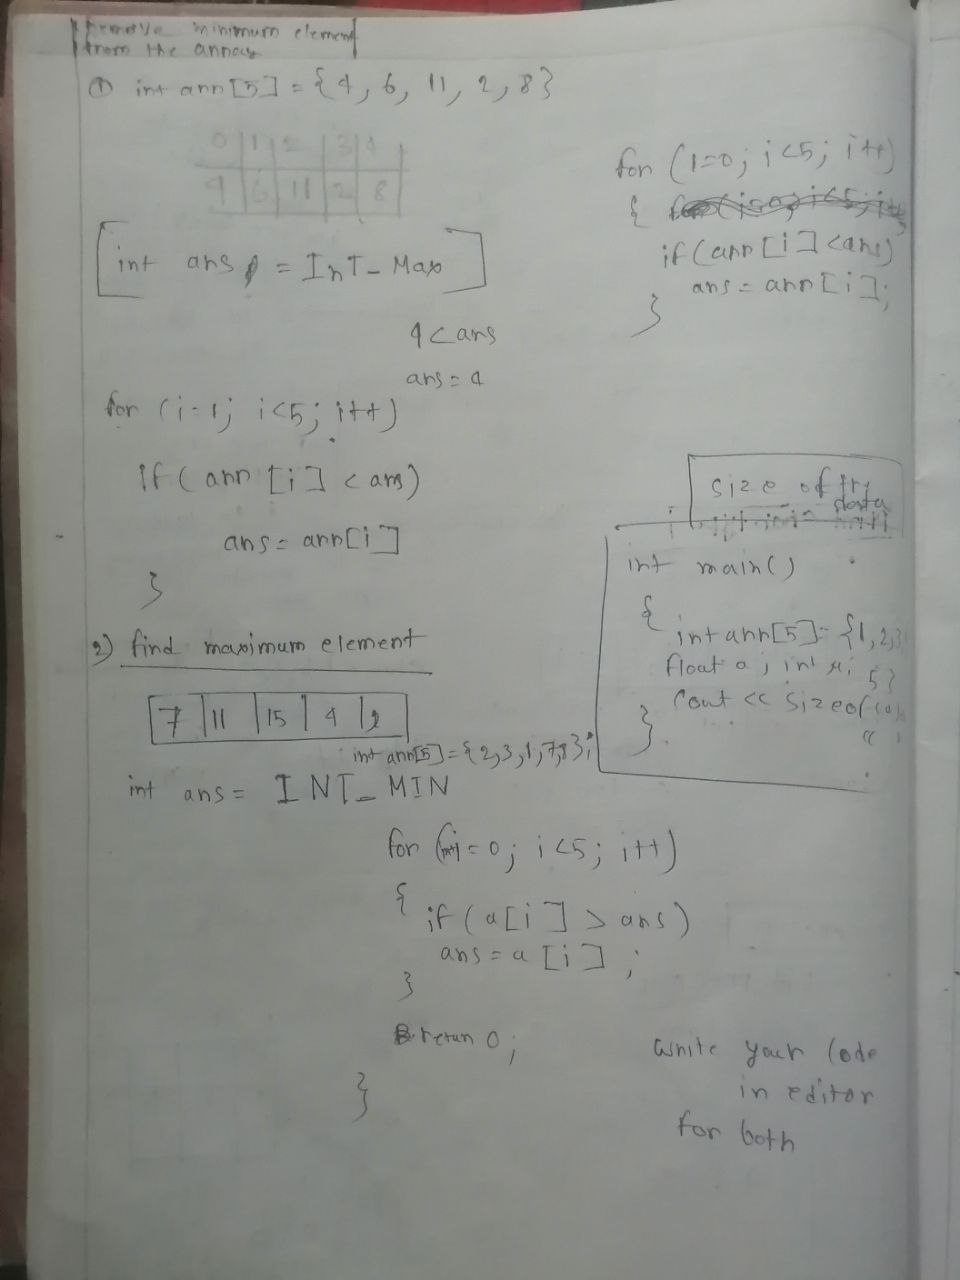 Remove minimum element
from the array
① int arr[5] = {4, 6, 11, 2, 8}
0 1 2 3 4
4 6 11 2 8
int ans = INT_Max
4 < ans
ans = 4
for (i=1; i<5; i++)
if (arr [i] < ans)
ans = arr[i]
}
for (i=0; i<5; i++)
{
if (arr [i] < ans)
ans = arr [i];
}
size of
data
int main()
{
int arr[5] = {1, 2, 3
5}
float a; int
cout << sizeof(a)
}
2) find maximum element
7 11 15 4 2
int arr[5] = {2, 3, 1, 7, 8};
int ans = INT_MIN
for (int i = 0; i<5; i++)
{
if (a[i] > ans)
ans = a [i] ;
}
retun 0;
}
write your code
in editor
for both